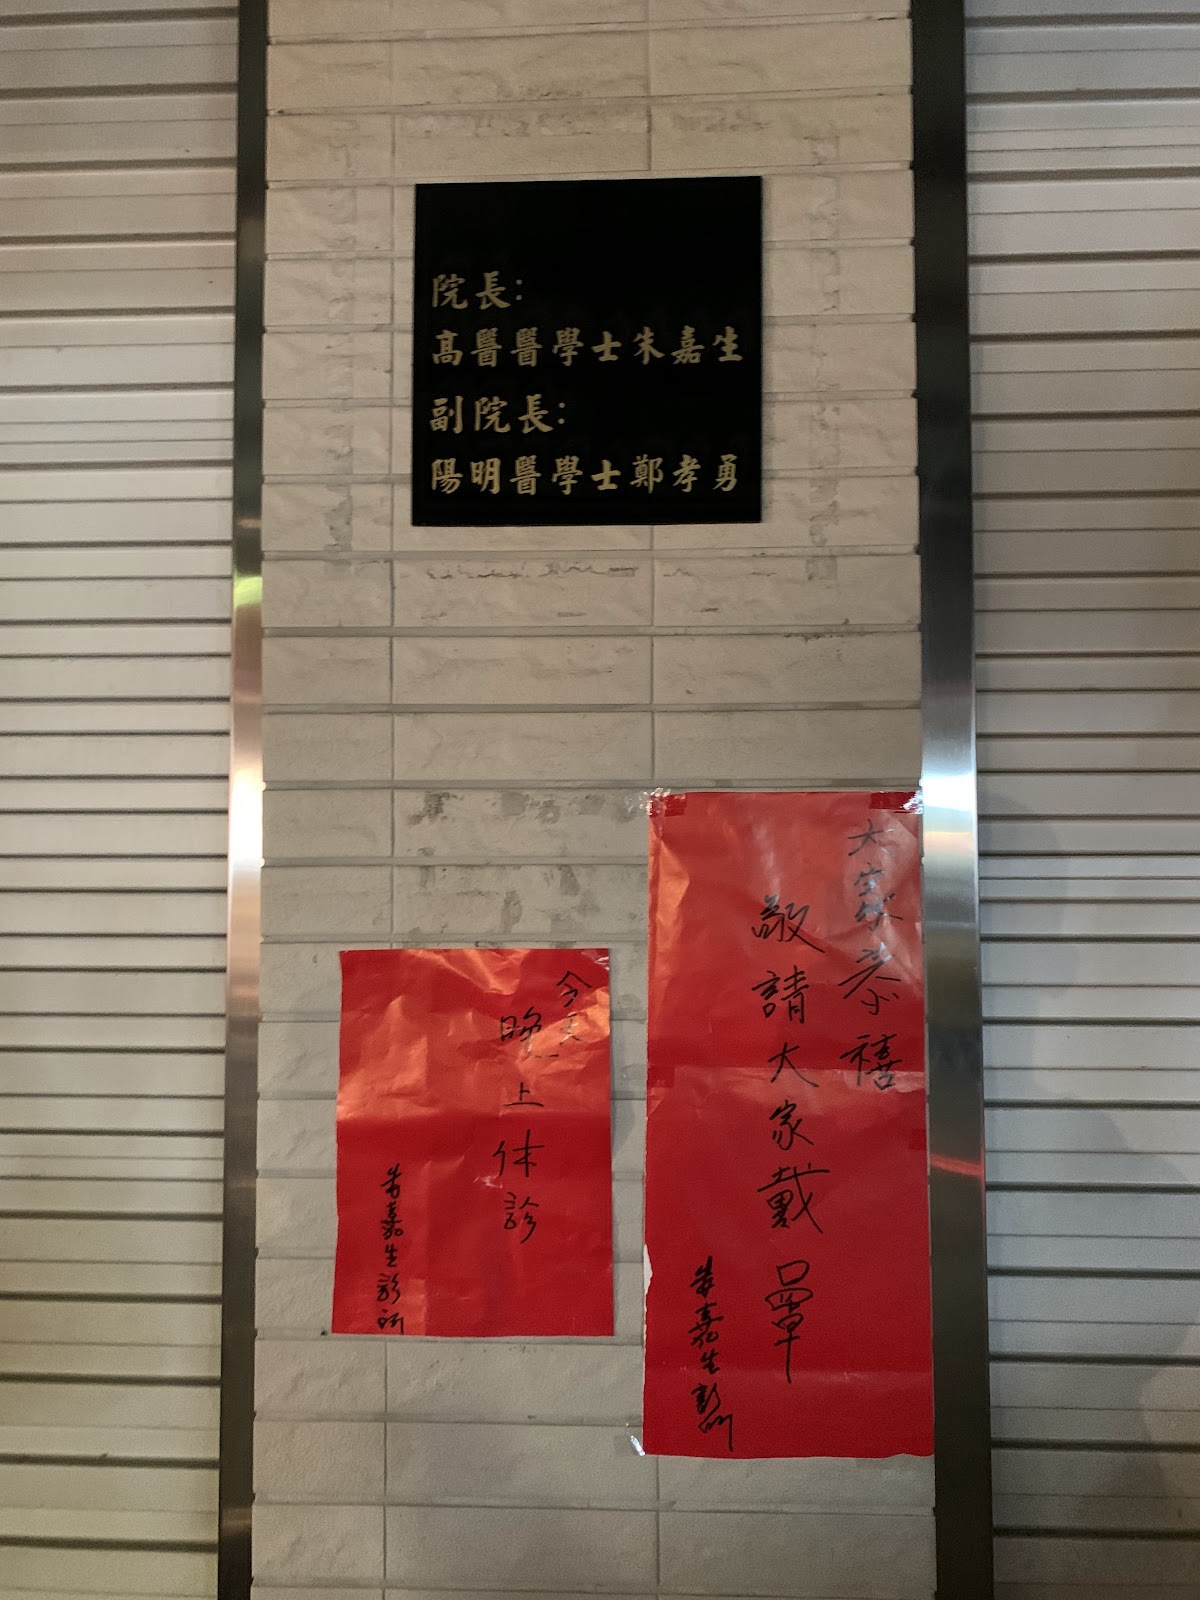 院長:
高醫醫學士朱嘉生
副院長:
陽明醫學士鄭孝勇
大家恭禧
敬請大家戴口罩
朱嘉生診所
今天
晚上休診
朱嘉生診所